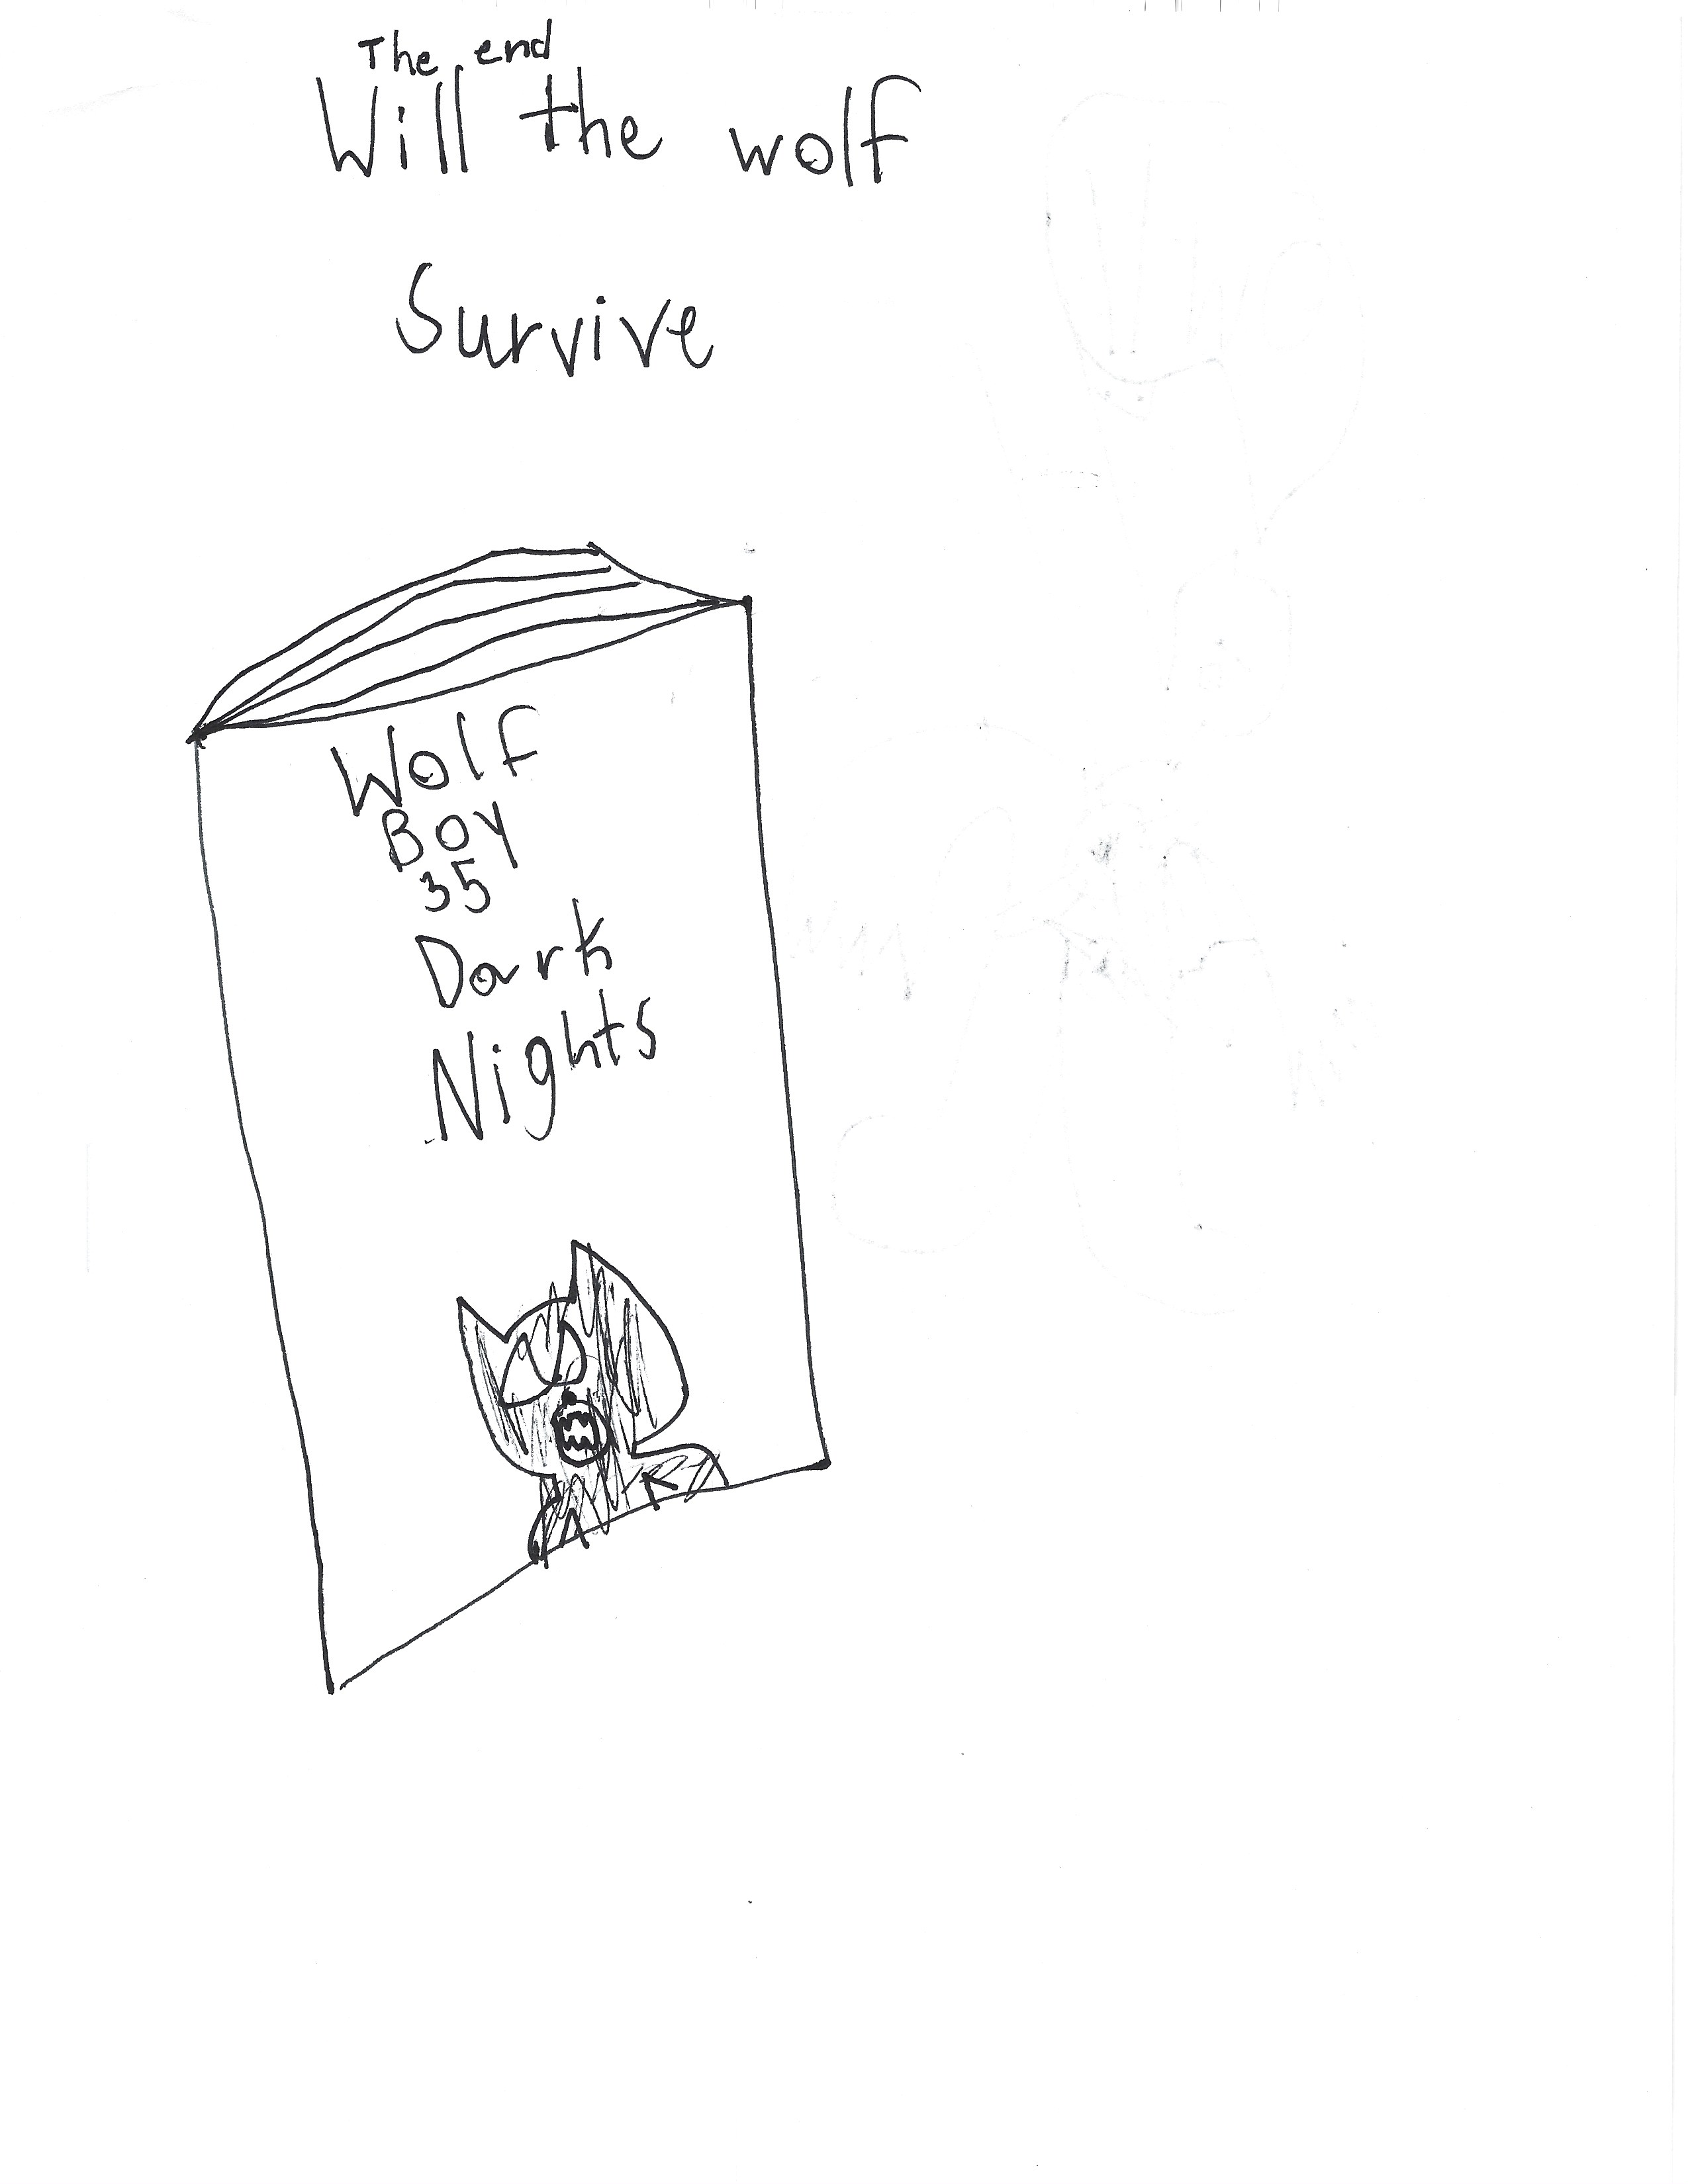 The end
Will the wolf
Survive
Wolf
Boy
35
Dark
Nights